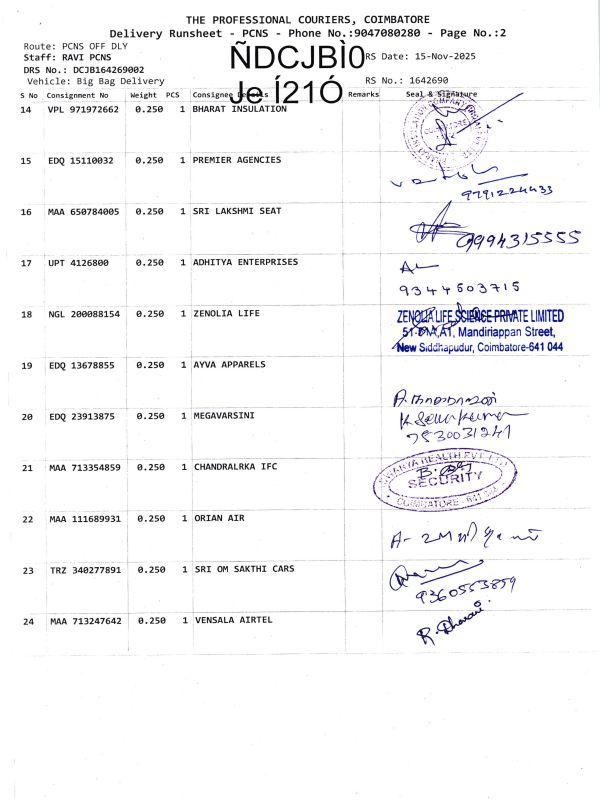 THE PROFESSIONAL COURIERS, COIMBATORE
Delivery Runsheet - PCNS - Phone No.:9047080280 - Page No.:2
Route: PCNS OFF DLY
Staff: RAVI PCNS
ÑDCJBÌ0
RS Date: 15-Nov-2025
DRS No.: DCJB164269002
Vehicle: Big Bag Delivery
Je Í21Ó
RS No.: 1642690
S No Consignment No Weight PCS Consignee Details Remarks Seal & Signature
14 VPL 971972662 0.250 1 BHARAT INSULATION
15 EDQ 15110032 0.250 1 PREMIER AGENCIES
9791224433
16 MAA 650784005 0.250 1 SRI LAKSHMI SEAT
9994315555
17 UPT 4126800 0.250 1 ADHITYA ENTERPRISES
9344603715
18 NGL 200088154 0.250 1 ZENOLIA LIFE
ZENOLIA LIFE SCIENCE PRIVATE LIMITED
Mandiriappan Street,
New Siddhapudur, Coimbatore-641 044
19 EDQ 13678855 0.250 1 AYVA APPARELS
20 EDQ 23913875 0.250 1 MEGAVARSINI
7530031241
21 MAA 713354859 0.250 1 CHANDRALRKA IFC
HEALTH PVT LTD
SECURITY
COIMBATORE - 641
22 MAA 111689931 0.250 1 ORIAN AIR
23 TRZ 340277891 0.250 1 SRI OM SAKTHI CARS
9360553859
24 MAA 713247642 0.250 1 VENSALA AIRTEL
R. Dharani